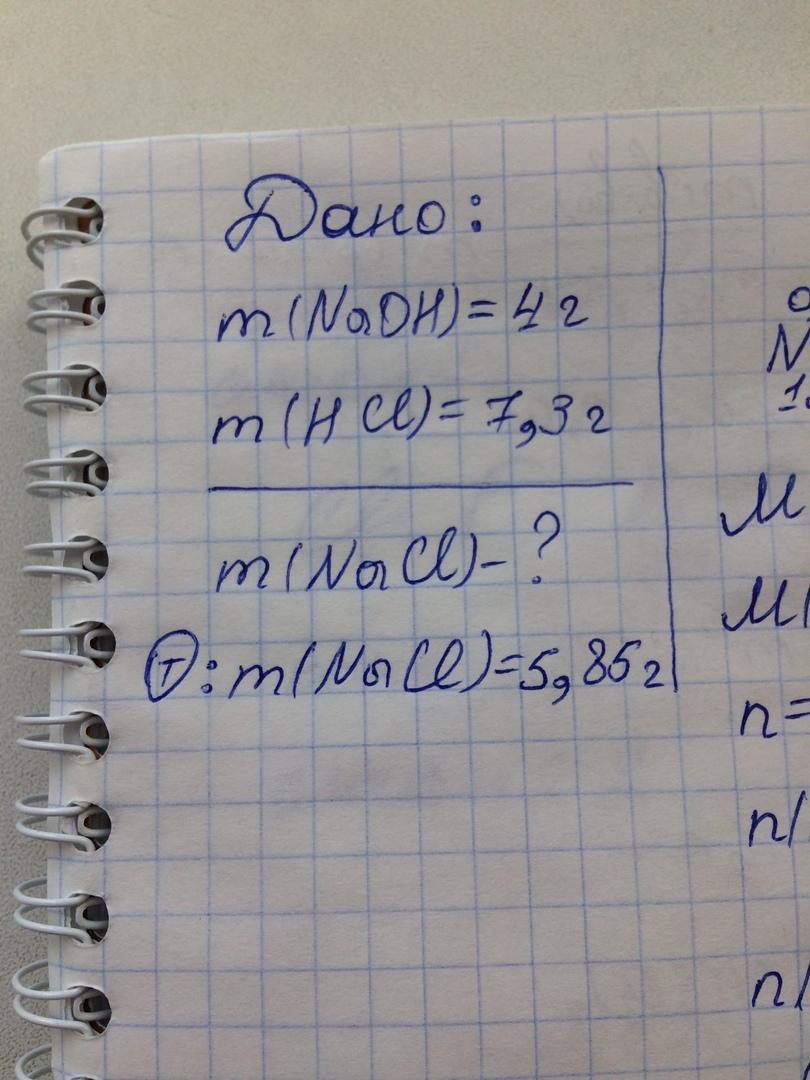 Дано:
m(NaOH)=4г
m(HCl)=7,3г
m(NaCl)-?
Т: m(NaCl)=5,85г
N
1.
M
M(
n=
n(
n(